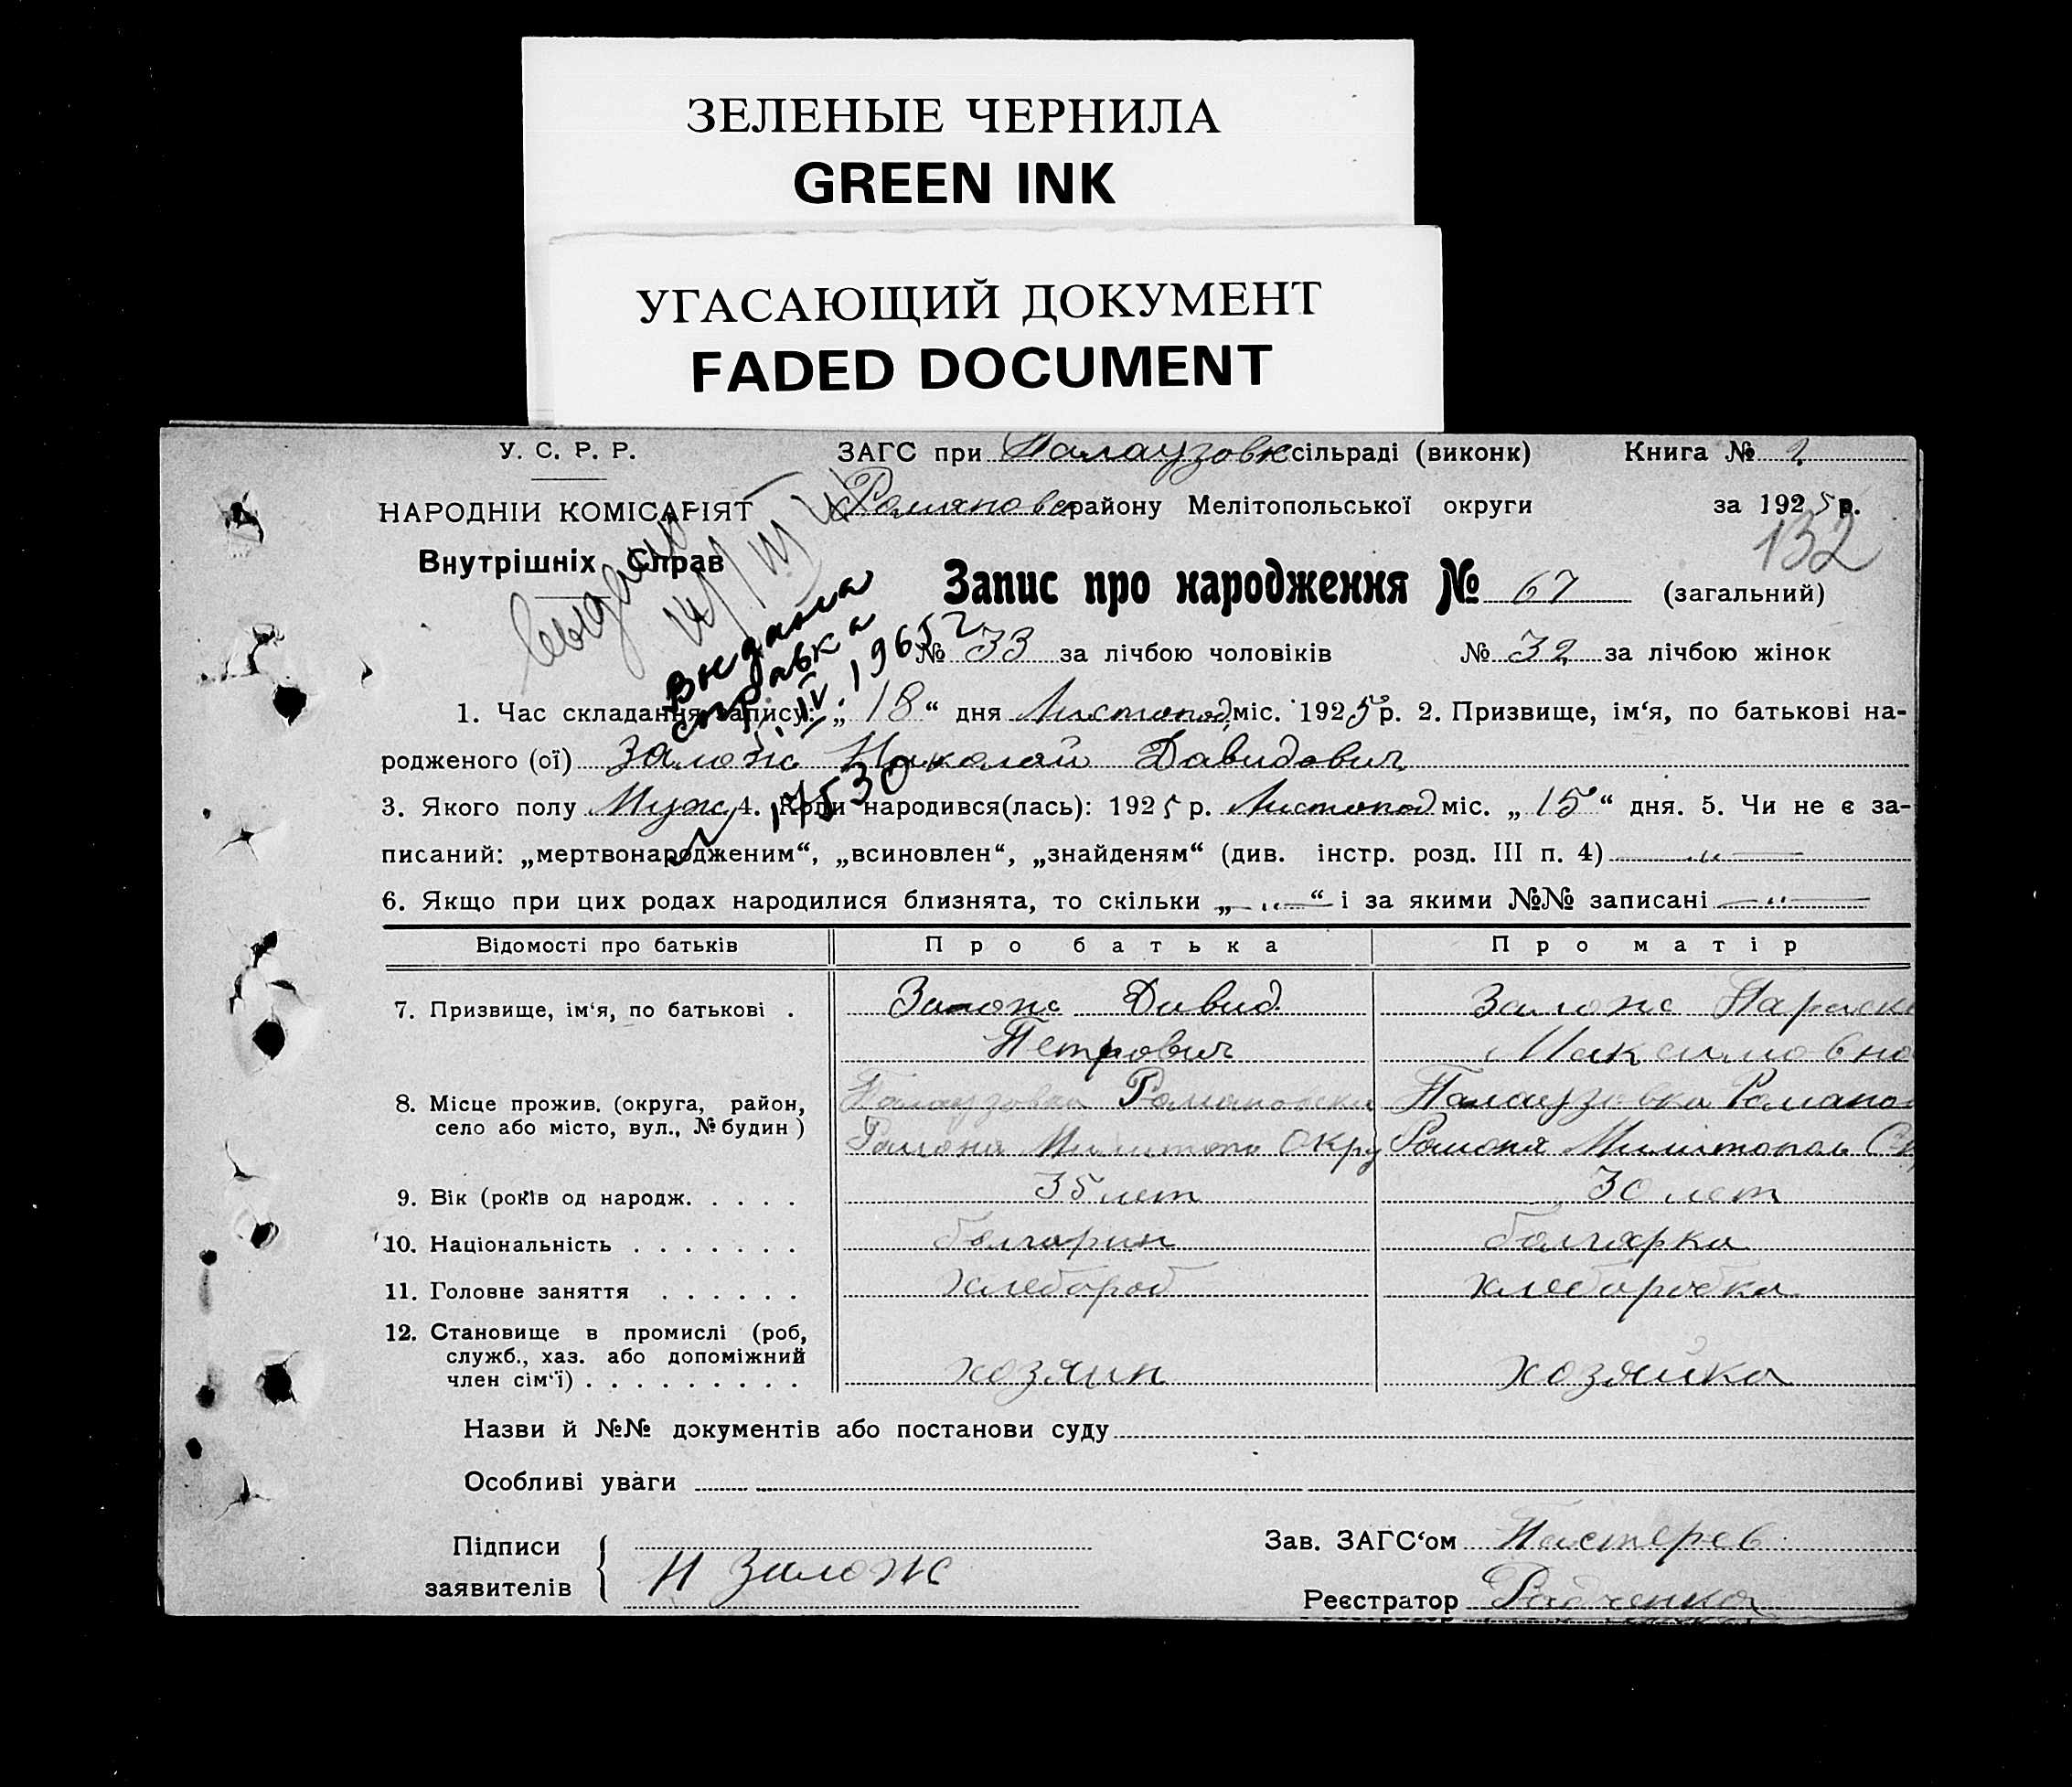 ЗЕЛЕНЫЕ ЧЕРНИЛА
GREEN INK
УГАСАЮЩИЙ ДОКУМЕНТ
FADED DOCUMENT
У. С. Р. Р.
НАРОДНІЙ КОМІСАРІЯТ
Внутрішніх Справ
ЗАГС при Палаузовк сільраді (виконк) Книга № 2
Романовс району Мелітопольської округи за 1925 р.
132
Запис про народження № 67 (загальний)
№ 33 за лічбою чоловіків № 32 за лічбою жінок
Выдана
справка
IV. 1965 г
17530
1. Час складання запису: „ 18 “ дня Листопад міс. 1925 р. 2. Призвище, ім‘я, по батькові на-
родженого (ої) Залож Николай Давидович
3. Якого полу Муж 4. Коли народився(лась): 1925 р. Листопад міс. „ 15 “ дня. 5. Чи не є за-
писаний: „мертвонародженим“, „всиновлен“, „знайденям“ (див. інстр. розд. III п. 4) — „ —
6. Якщо при цих родах народилися близнята, то скільки „ — „ — “ і за якими №№ записані — „ —
Відомості про батьків Про батька Про матір
7. Призвище, ім‘я, по батькові . Залож Давид Залож Параск
Петрович Максимовно
8. Місце прожив. (округа, район, Палаузовка Романовски Палаузовка Романов
село або місто, вул., № будин) Района Милитопо Окру Района Милитополь Ок
9. Вік (років од народж. . . . . 35 лет 30 лет
10. Національність . . . . . . . болгарин болгарка
11. Головне заняття . . . . . . хлебороб хлеборобка
12. Становище в промислі (роб,
служб., хаз. або допоміжний
член сім‘ї) . . . . . . . . . хозяин хозяйка
Назви й №№ документів або постанови суду
Особливі уваги
Підписи
заявителів Н Залож
Зав. ЗАГС‘ом Пастерев
Реєстратор Радченко